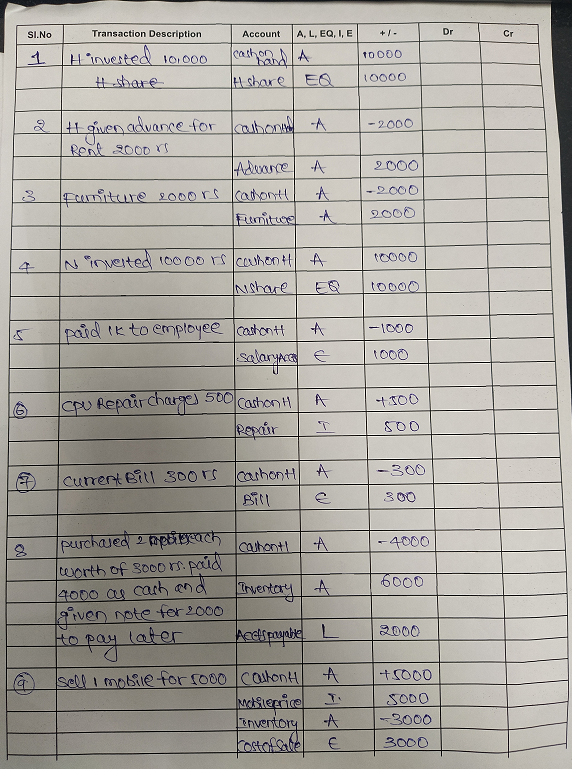 Sl.No Transaction Description Account A, L, EQ, I, E +/- Dr Cr
1 H invested 10,000 cash on hand A 10000
H share H share EQ 10000
2 H given advance for cashonhd A -2000
Rent 2000 rs
Advance A 2000
3 Furniture 2000 rs CashontH A -2000
Furniture A 2000
4 N invested 10000 rs cashon H A 10000
N share EQ 10000
5 paid 1K to employee CashontH A -1000
Salary Acc E 1000
6 CPU Repair charges 500 Cashon H A +500
Repair I 500
7 current Bill 300 rs CashontH A -300
Bill E 300
8 purchased 2 each CashontH A -4000
worth of 3000 rs. paid
4000 as cash and Inventory A 6000
given note for 2000
to pay later Acctspayable L 2000
9 sell 1 mobile for 5000 CashontH A +5000
Mobileprice I. 5000
Inventory A -3000
Costofsale E 3000